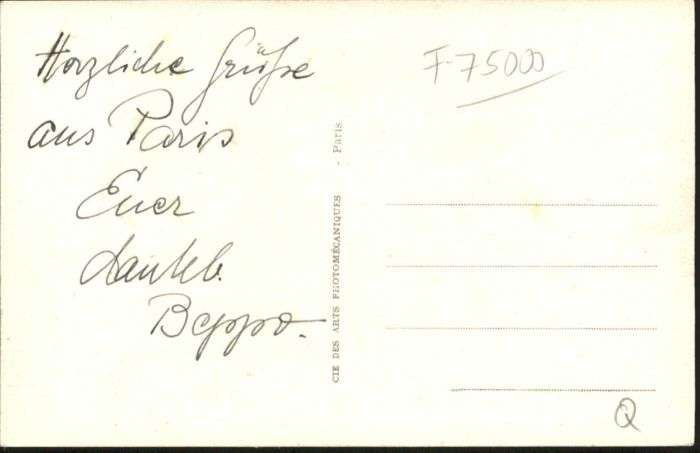 Herzliche Grüße
aus Paris
Euer
dankb.
Beppo.
F-75000
CIE DES ARTS PHOTOMÉCANIQUES - Paris
Q